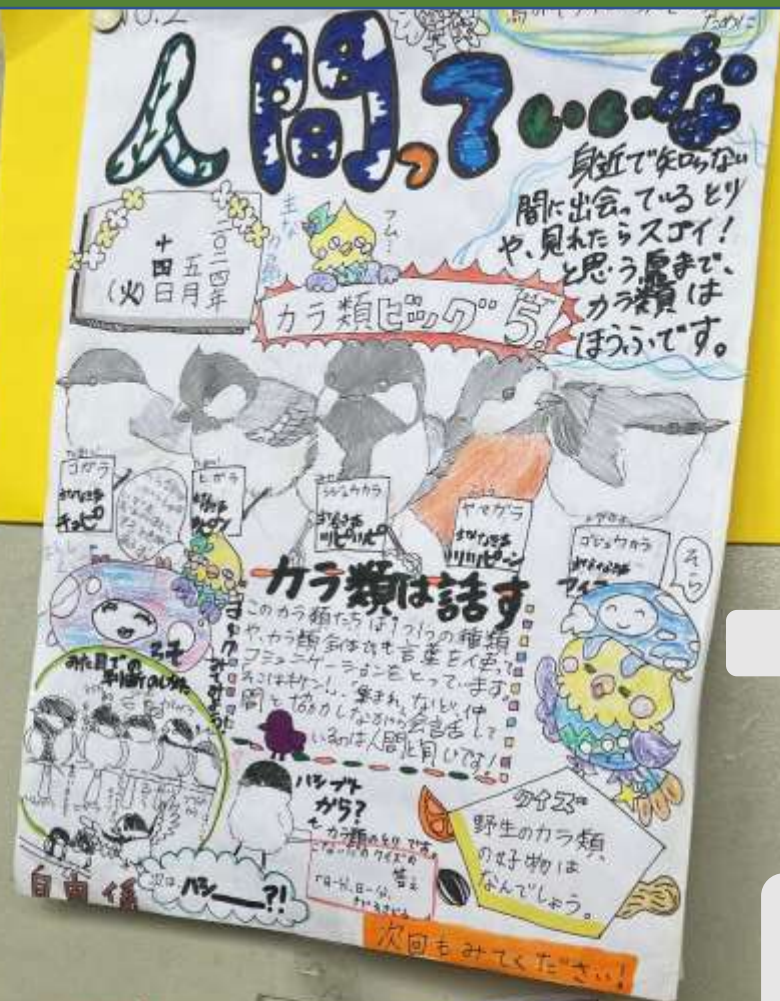 No.2
ために
人間っていいな
身近で知らない
間に出会っているとり
や、見れたらスゴイ！
と思う鳥まで、
カラ類は
ほうふです。
二〇二四年
五月
十四日
(火)
フム…
カラ類ビッグ5!
コガラ
チョピ
ヒガラ
シジュウカラ
ツピツピ
ヤマガラ
ゴジュウカラ
そら
カラ類は話す
このカラ類たちは1つ1つの種類
や、カラ類全体でも言葉を使って
コミュニケーションをとっています。
そこはキケン!、集まれ、など、仲
間と協力しながら会話して
いるのは人間と同じですね!
みた目での
判断のしかた
ハシブト
から?
カラ類のとりです。
答え
次は、ハシ――?!
クイズ
野生のカラ類
の好物は
なんでしょう。
自由係
次回もみてください!